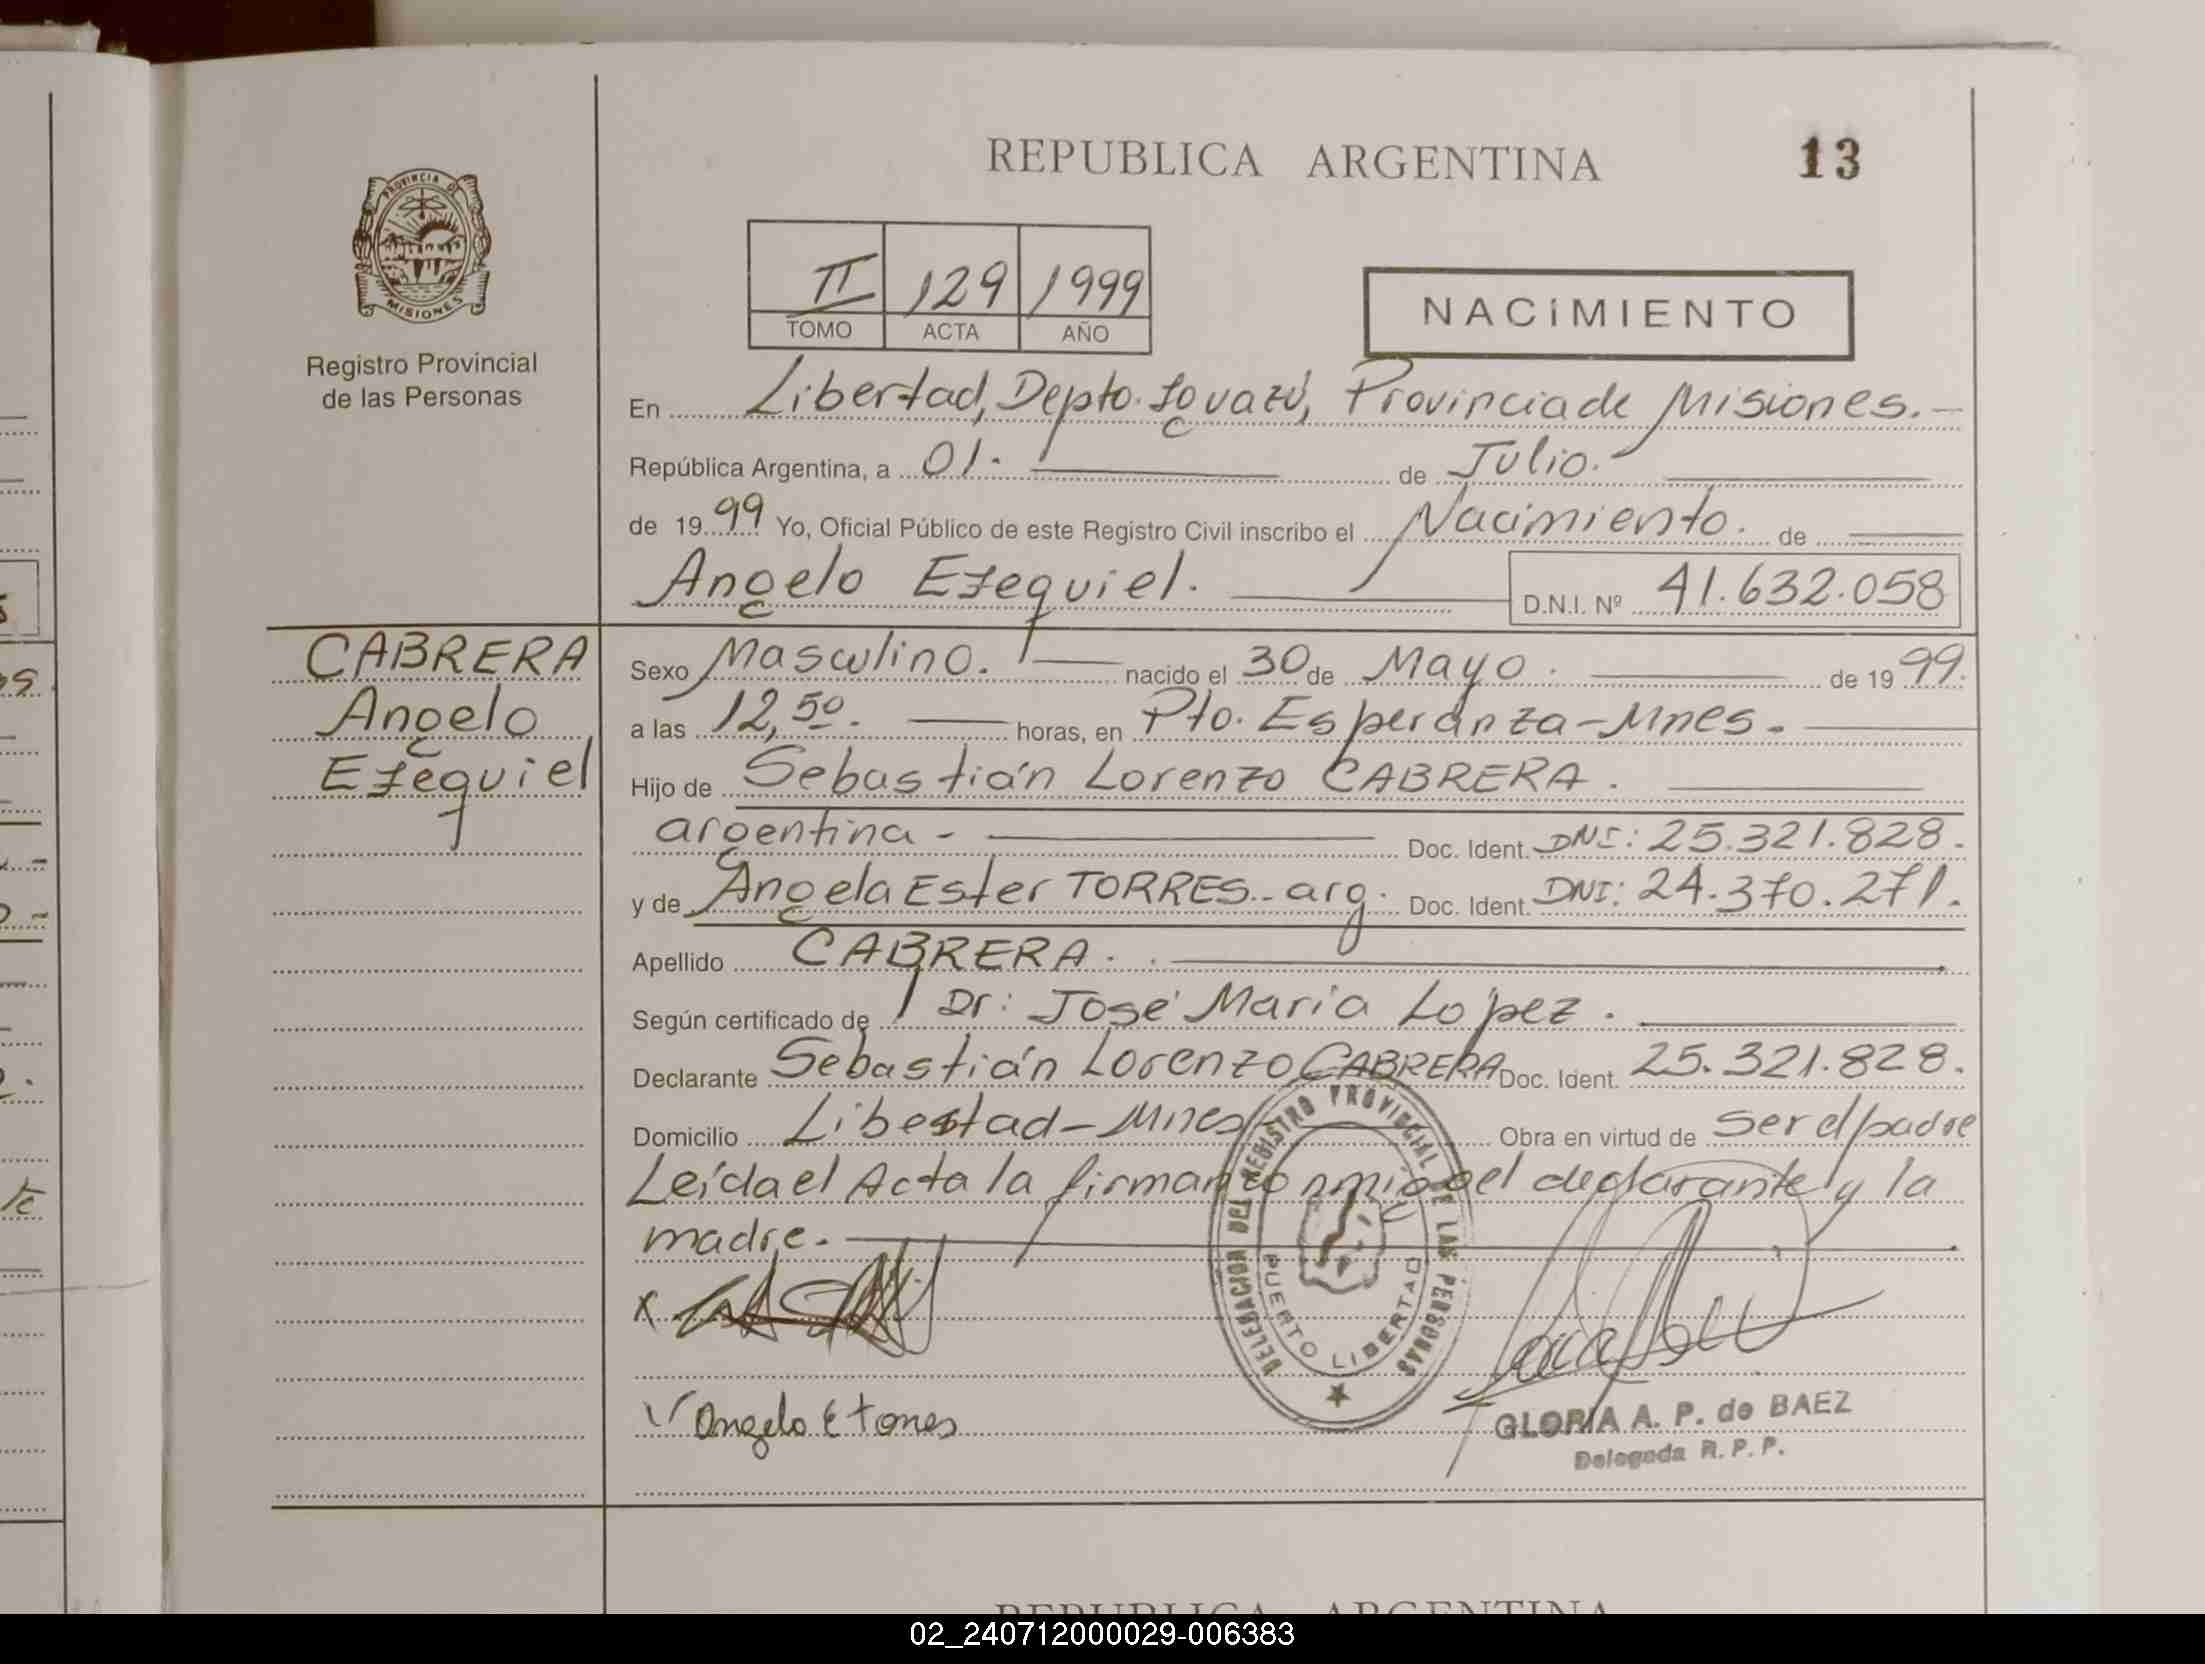 REPUBLICA ARGENTINA
13
PROVINCIA DE
MISIONES
Registro Provincial
de las Personas
II 129 1999
TOMO ACTA AÑO
NACIMIENTO
En Libertad, Depto. Iguazú, Provincia de Misiones.-
República Argentina, a 01. de Julio.
de 1999 Yo, Oficial Público de este Registro Civil inscribo el Nacimiento. de
Angelo Ezequiel. D.N.I. Nº 41.632.058
CABRERA
Angelo
Ezequiel
Sexo Masculino. nacido el 30 de Mayo. de 1999.
a las 12,50. horas, en Pto. Esperanza-Mnes.
Hijo de Sebastián Lorenzo CABRERA.
argentina - Doc. Ident. DNI: 25.321.828.
y de Angela Ester TORRES.- arg. Doc. Ident. DNI: 24.370.271.
Apellido CABRERA.
Según certificado de Dr: José María López.
Declarante Sebastián Lorenzo CABRERA Doc. Ident. 25.321.828.
Domicilio Libertad-Mnes Obra en virtud de ser el padre
Leída el Acta la firman conmigo el declarante y la
madre.
DELEGACION DEL REGISTRO PROVINCIAL DE LAS PERSONAS
PUERTO LIBERTAD
X
Angela E torres
GLORIA A. P. de BAEZ
Delegada R. P. P.
REPUBLICA ARGENTINA
02_240712000029-006383